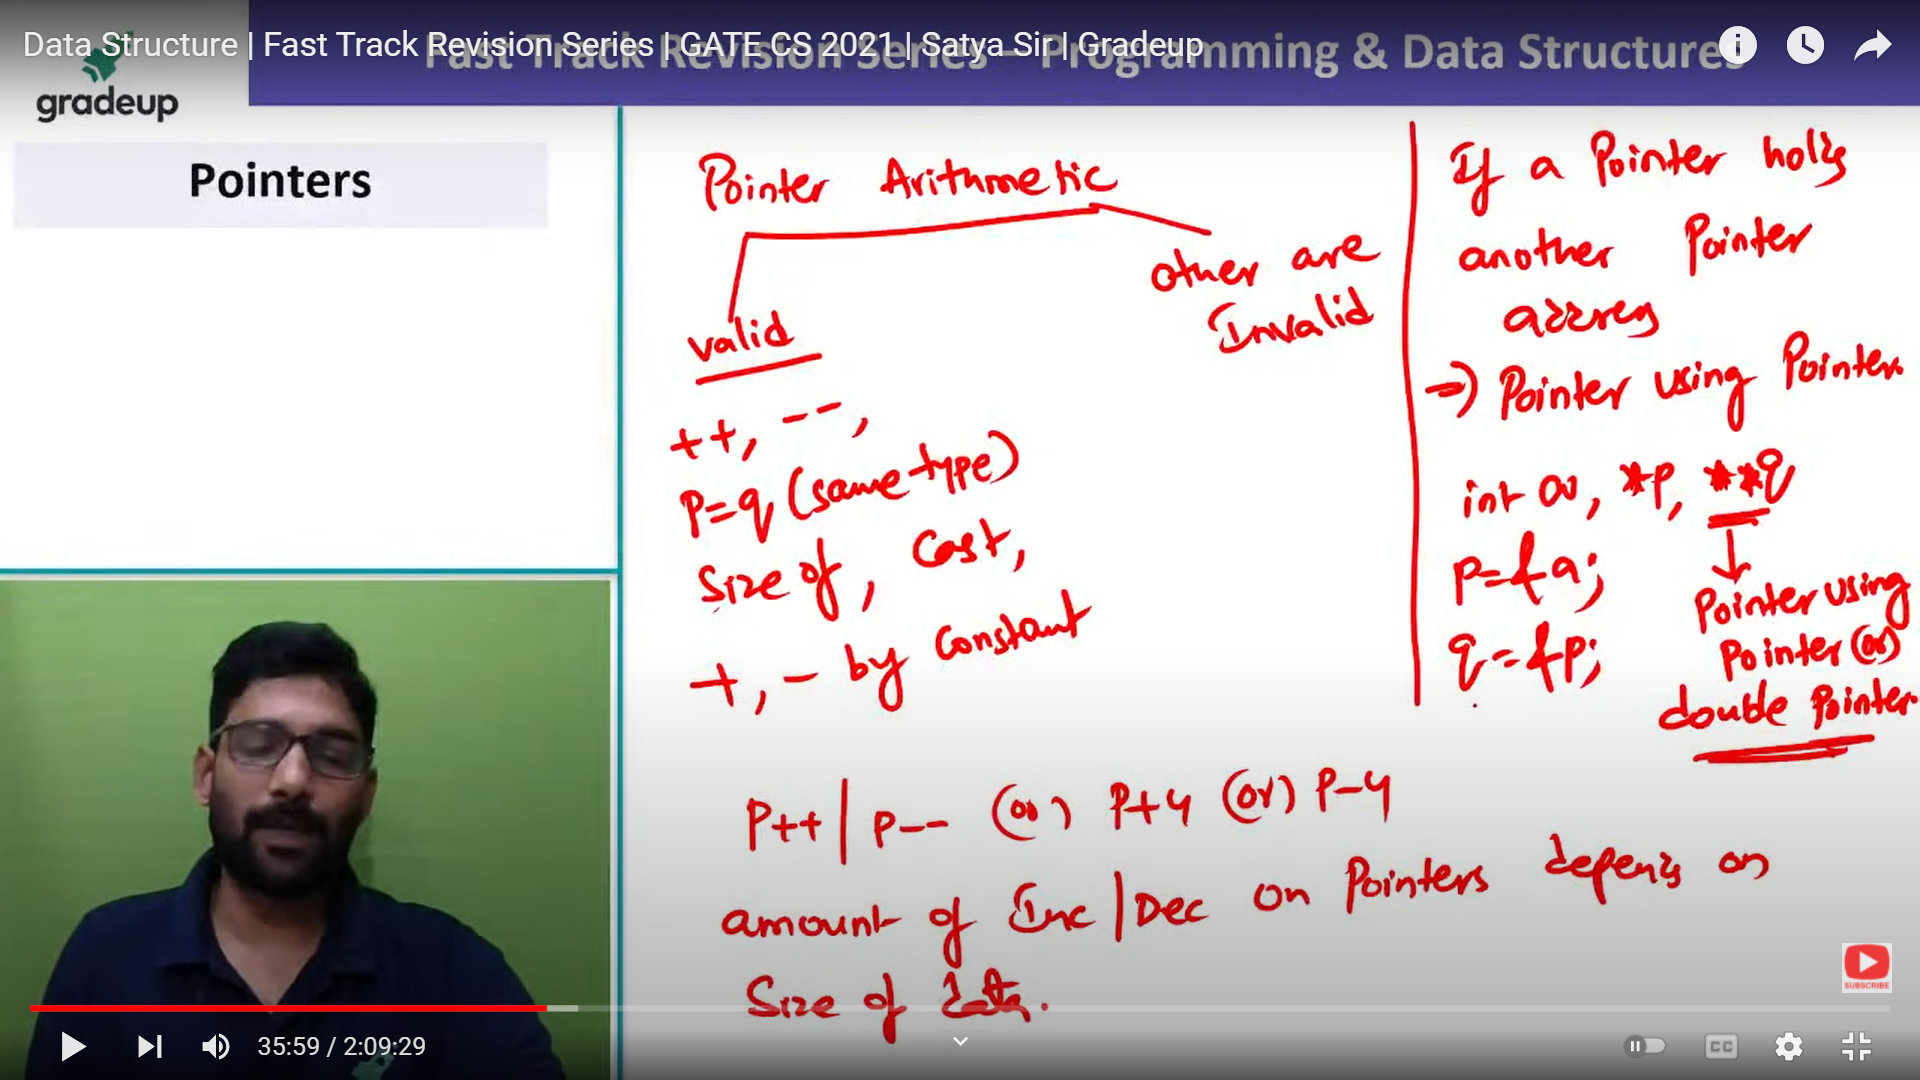 Data Structure | Fast Track Revision Series | GATE CS 2021 | Satya Sir | Gradeup
Fast Track Revision Series – Programming & Data Structures
gradeup
Pointers
Pointer Arithmetic
valid
other are
Invalid
++, --,
P=q (same type)
Size of, Cast,
+, - by Constant
If a Pointer holds
another Pointer
address
=> Pointer using Pointer.
int a, *P, **q
P=&a;
q=&P;
Pointer using
Pointer (or)
double Pointer.
P++ | P-- (or) P+4 (or) P-4
amount of Inc | Dec on Pointers depends on
Size of data.
SUBSCRIBE
35:59 / 2:09:29
CC